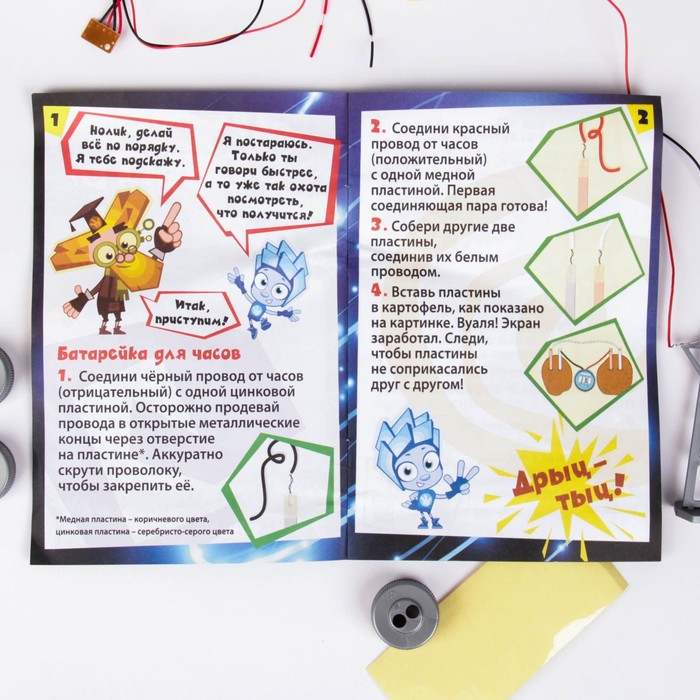 1
Нолик, делай
всё по порядку.
Я тебе подскажу.
Я постараюсь.
Только ты
говори быстрее,
а то уже так охота
посмотреть,
что получится!
Итак,
приступим!
Батарейка для часов
1. Соедини чёрный провод от часов
(отрицательный) с одной цинковой
пластиной. Осторожно продевай
провода в открытые металлические
концы через отверстие
на пластине*. Аккуратно
скрути проволоку,
чтобы закрепить её.
*Медная пластина – коричневого цвета,
цинковая пластина – серебристо-серого цвета
2
2. Соедини красный
провод от часов
(положительный)
с одной медной
пластиной. Первая
соединяющая пара готова!
3. Собери другие две
пластины,
соединив их белым
проводом.
4. Вставь пластины
в картофель, как показано
на картинке. Вуаля! Экран
заработал. Следи,
чтобы пластины
не соприкасались
друг с другом!
Дрыц-
тыц!